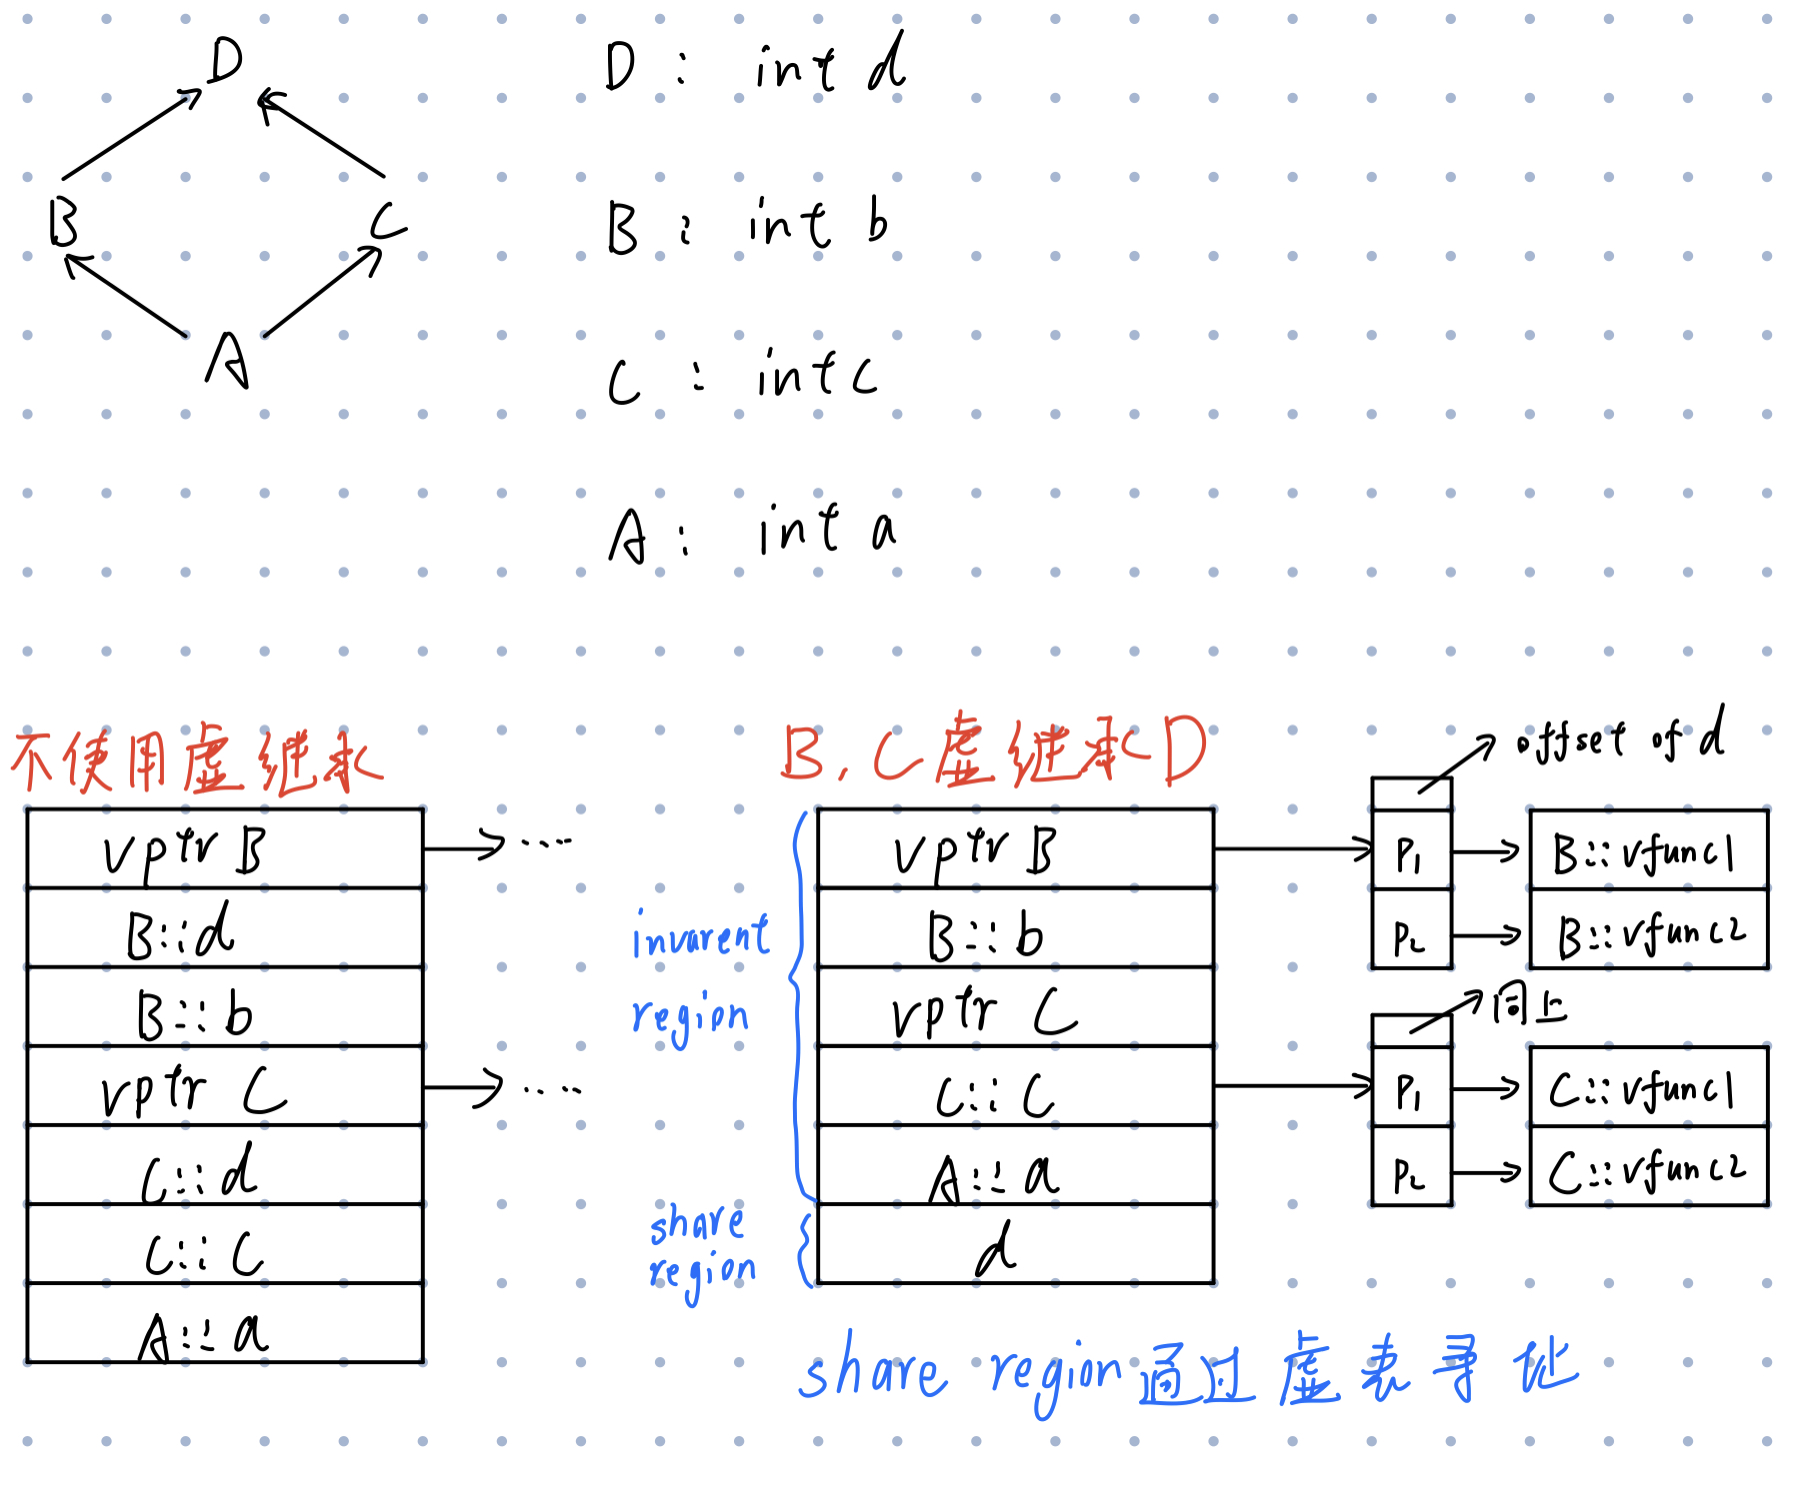 D
B C
A
D : int d
B : int b
C : int c
A : int a
不使用虚继承
vptr B ....
B::d
B::b
vptr C ....
C::d
C::C
A::a
B,C虚继承D
invarent
region
share
region
vptr B
B::b
vptr C
C::C
A::a
d
offset of d
P1 B::vfunc1
P2 B::vfunc2
同上
P1 C::vfunc1
P2 C::vfunc2
share region通过虚表寻址